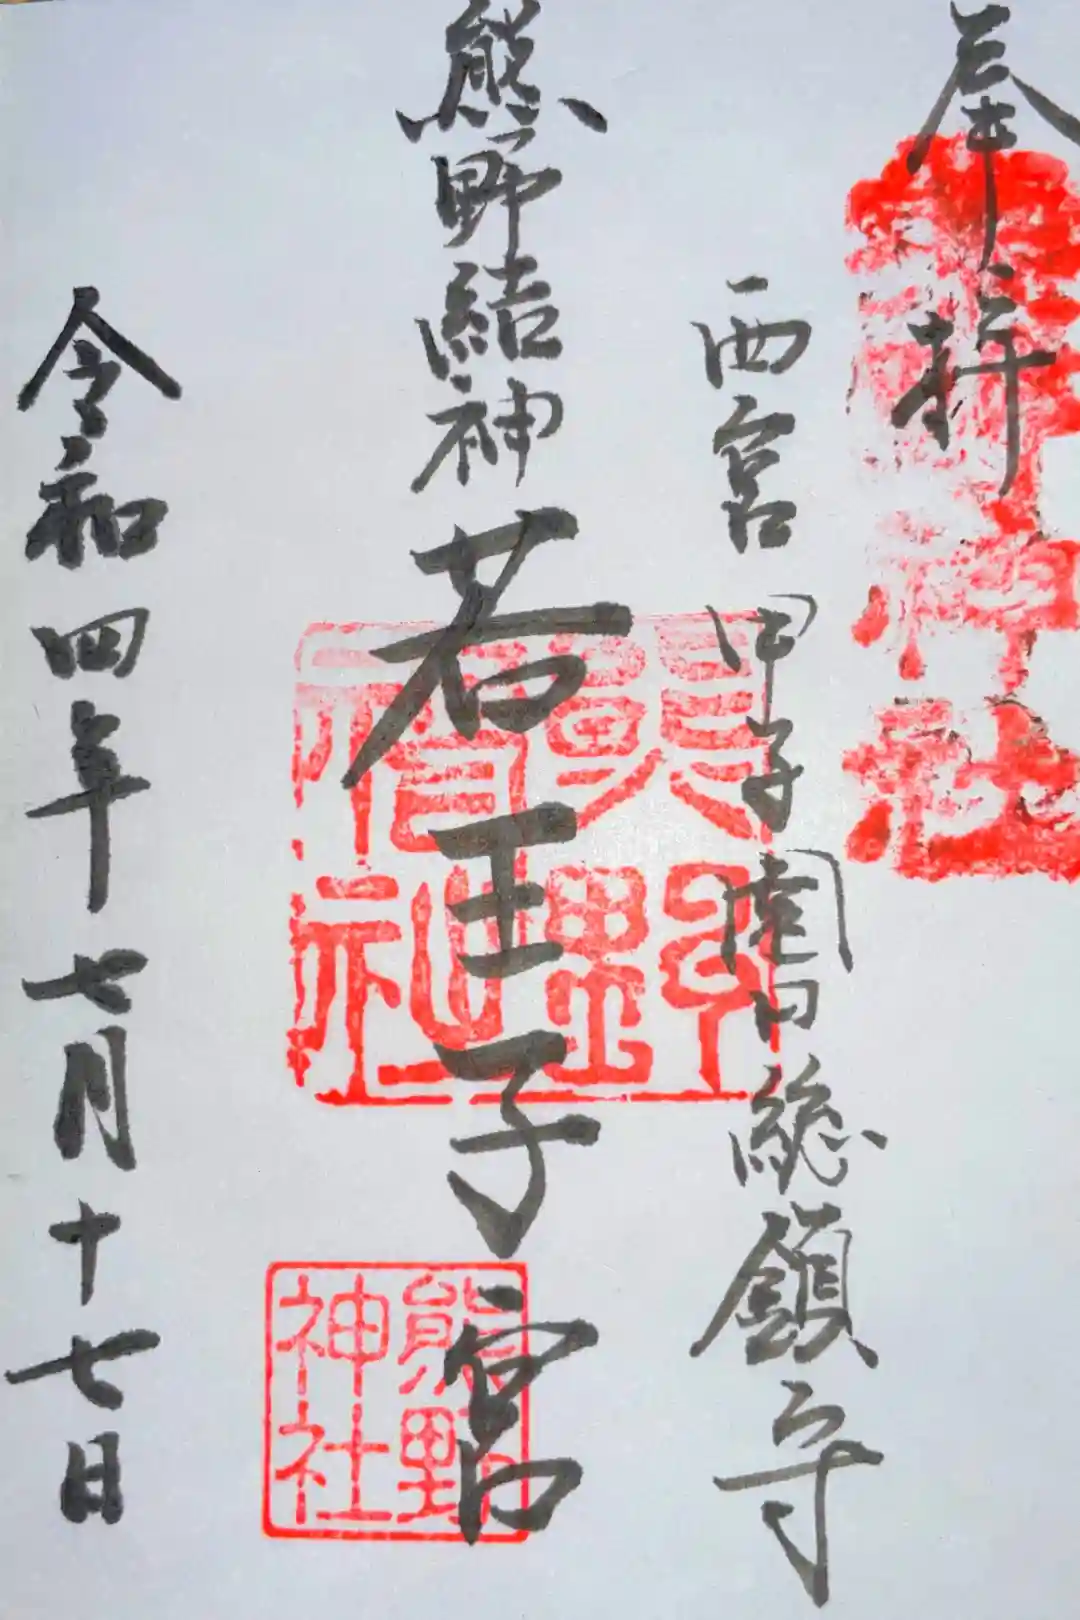 奉拝
西宮甲子園口総鎮守
熊野結神 若王子宮
熊野
神社
令和四年七月十七日